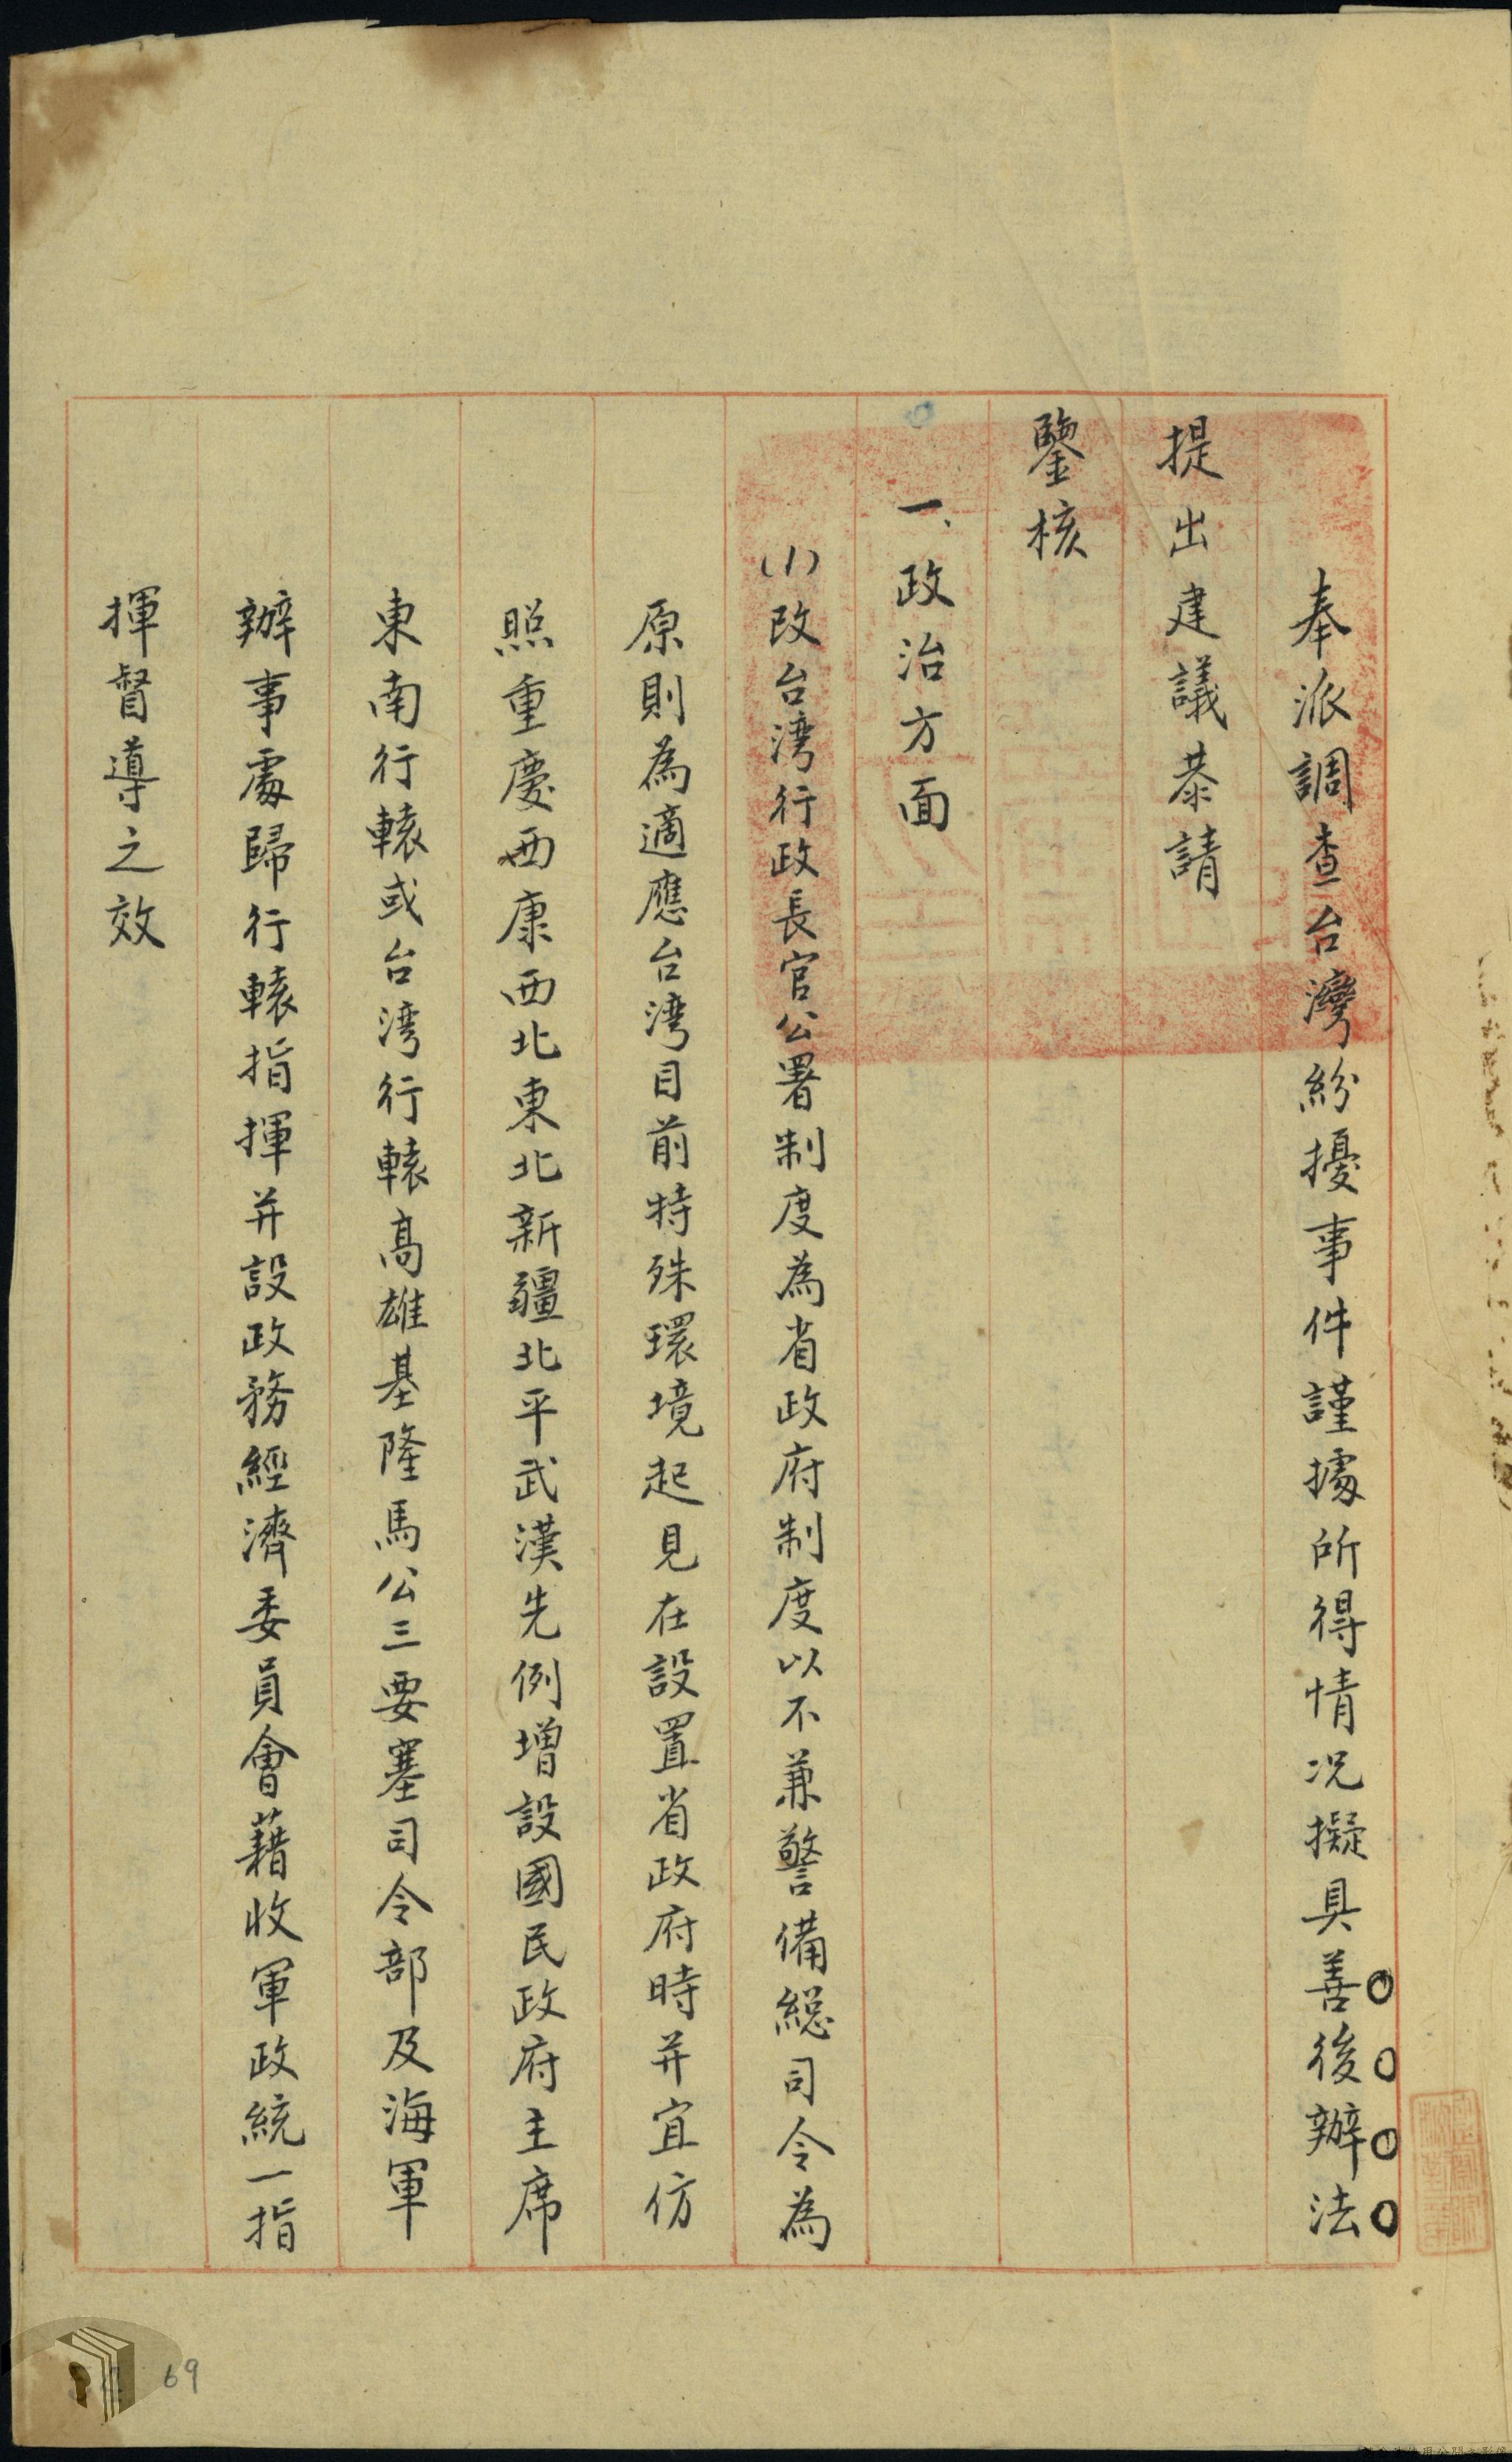 奉派調查台灣紛擾事件謹據所得情況擬具善後辦法
提出建議恭請
鑒核
一、政治方面
(1)改台湾行政長官公署制度為省政府制度以不兼警備総司令為
原則為適應台湾目前特殊環境起見在設置省政府時并宜仿
照重慶西康西北東北新疆北平武漢先例增設國民政府主席
東南行轅或台湾行轅高雄基隆馬公三要塞司令部及海軍
辦事處歸行轅指揮并設政務經濟委員會藉收軍政統一指
揮督導之效
69